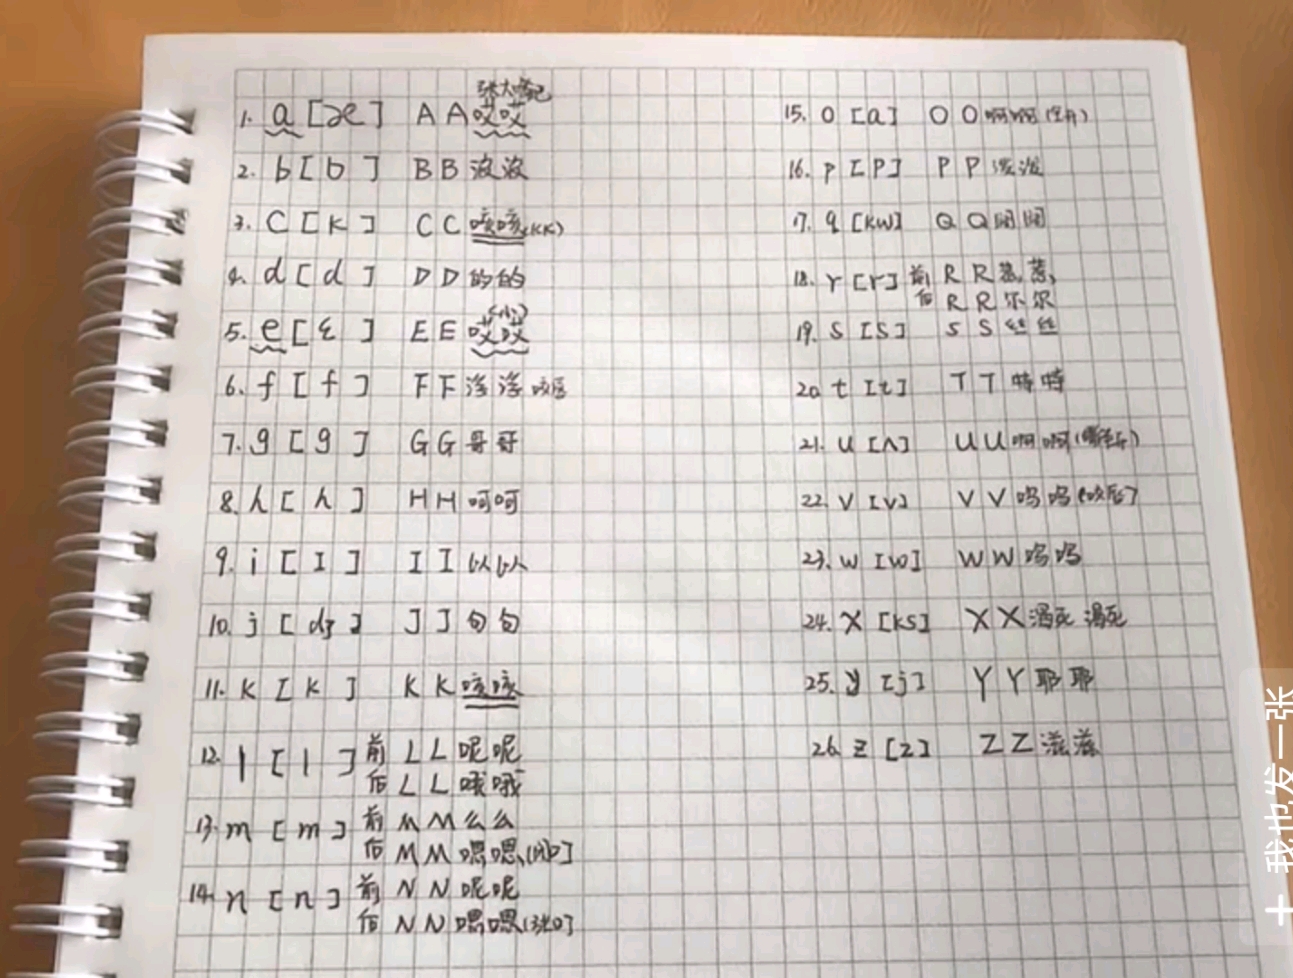 张大嘴巴
1. a [æ] A A 哎哎
2. b [b] B B 波波
3. C [k] C C 咳咳 (KK)
4. d [d] D D 的的
(小)
5. e [ɛ] E E 哎哎
6. f [f] F F 浮浮 咬唇
7. g [g] G G 哥哥
8. h [h] H H 呵呵
9. i [I] I I 以以
10. j [dʒ] J J 句句
11. K [K] K K 咳咳
12. l [l] 前 L L 呢呢
后 L L 哦哦
13. m [m] 前 M M 么么
后 M M 嗯嗯 (闭口]
14. n [n] 前 N N 呢呢
后 N N 嗯嗯 (张口]
15. O [a] O O 啊啊
16. P [P] P P 泼泼
17. q [KW] Q Q
18. r [r] 前 R R
后 R R 尔尔
19. S [S] S S 丝丝
20. t [t] T T 特特
21. U [ʌ] U U 啊啊
22. V [V] V V 呜呜 (咬唇)
23. W [W] W W 呜呜
24. X [KS] X X 渴死 渴死
25. y [j] Y Y 耶耶
26. Z [Z] Z Z 滋滋
+ 我也发一张